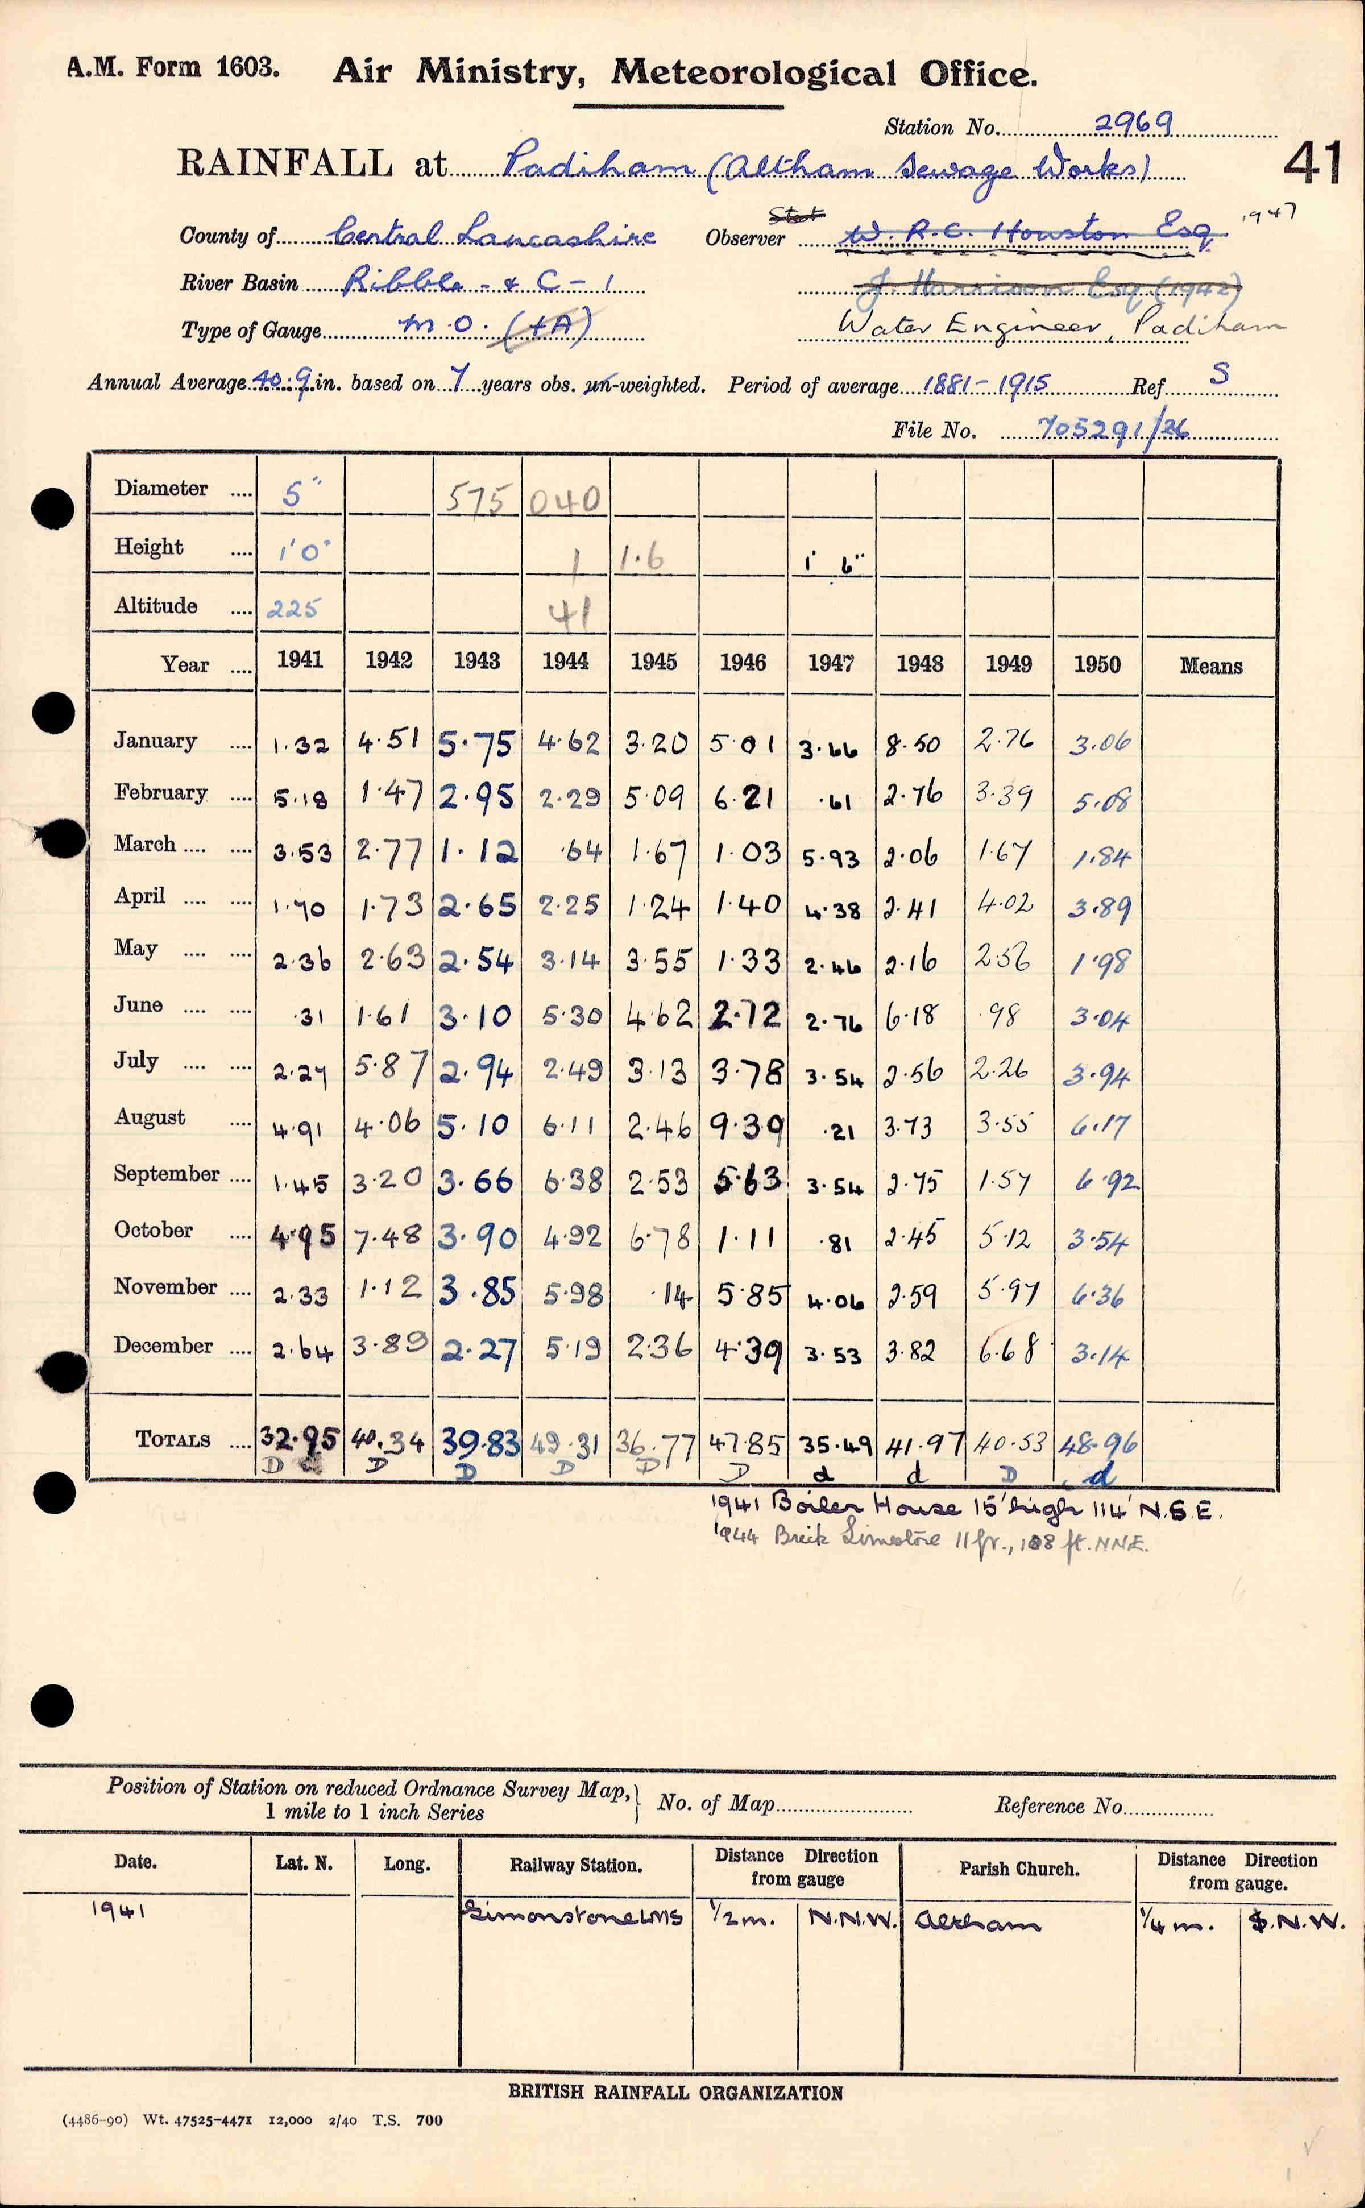 A.M. Form 1603. Air Ministry, Meteorological Office.
Station No. 2969
RAINFALL at Padiham (Altham Sewage Works) 41
County of Central Lancashire Observer W. R.C. Houston Esq 1947
River Basin Ribble - & C - 1 J. Harrison Esq (1942)
Type of Gauge M.O. (+A) Water Engineer, Padiham
Annual Average 40.9 in. based on 7 years obs. un-weighted. Period of average 1881-1915 Ref S
File No. 705291/26
Diameter .... 5" 575 040
Height .... 1'0" 1 1.6 1' 6"
Altitude .... 225 41
Year .... 1941 1942 1943 1944 1945 1946 1947 1948 1949 1950 Means
January .... 1.32 4.51 5.75 4.62 3.20 5.01 3.66 8.50 2.76 3.06
February .... 5.18 1.47 2.95 2.29 5.09 6.21 .61 2.76 3.39 5.08
March .... .... 3.53 2.77 1.12 .64 1.67 1.03 5.93 2.06 1.67 1.84
April .... .... 1.70 1.73 2.65 2.25 1.24 1.40 4.38 2.41 4.02 3.89
May .... .... 2.36 2.63 2.54 3.14 3.55 1.33 2.46 2.16 2.56 1.98
June .... .... .31 1.61 3.10 5.30 4.62 2.72 2.76 6.18 .98 3.04
July .... .... 2.27 5.87 2.94 2.49 3.13 3.78 3.54 2.56 2.26 3.94
August .... 4.91 4.06 5.10 6.11 2.46 9.39 .21 3.73 3.55 6.17
September .... 1.45 3.20 3.66 6.38 2.53 5.63 3.54 2.75 1.57 6.92
October .... 4.95 7.48 3.90 4.92 6.78 1.11 .81 2.45 5.12 3.54
November .... 2.33 1.12 3.85 5.98 .14 5.85 4.06 2.59 5.97 6.36
December .... 2.64 3.89 2.27 5.19 2.36 4.39 3.53 3.82 6.68 3.14
TOTALS .... 32.95 40.34 39.83 49.31 36.77 47.85 35.49 41.97 40.53 48.96
D D D D D D d d D d
1941 Boiler House 15' high 114' N.S.E.
1944 Brick Limestore 11 ft., 108 ft. NNE.
Position of Station on reduced Ordnance Survey Map, No. of Map Reference No.
1 mile to 1 inch Series
Date. Lat. N. Long. Railway Station. Distance Direction from gauge Parish Church. Distance Direction from gauge.
1941 Simonstone LMS 1/2 m. N.N.W. Altham 1/4 m. S.N.W.
BRITISH RAINFALL ORGANIZATION
(4486-90) Wt. 47525-4471 12,000 2/40 T.S. 700